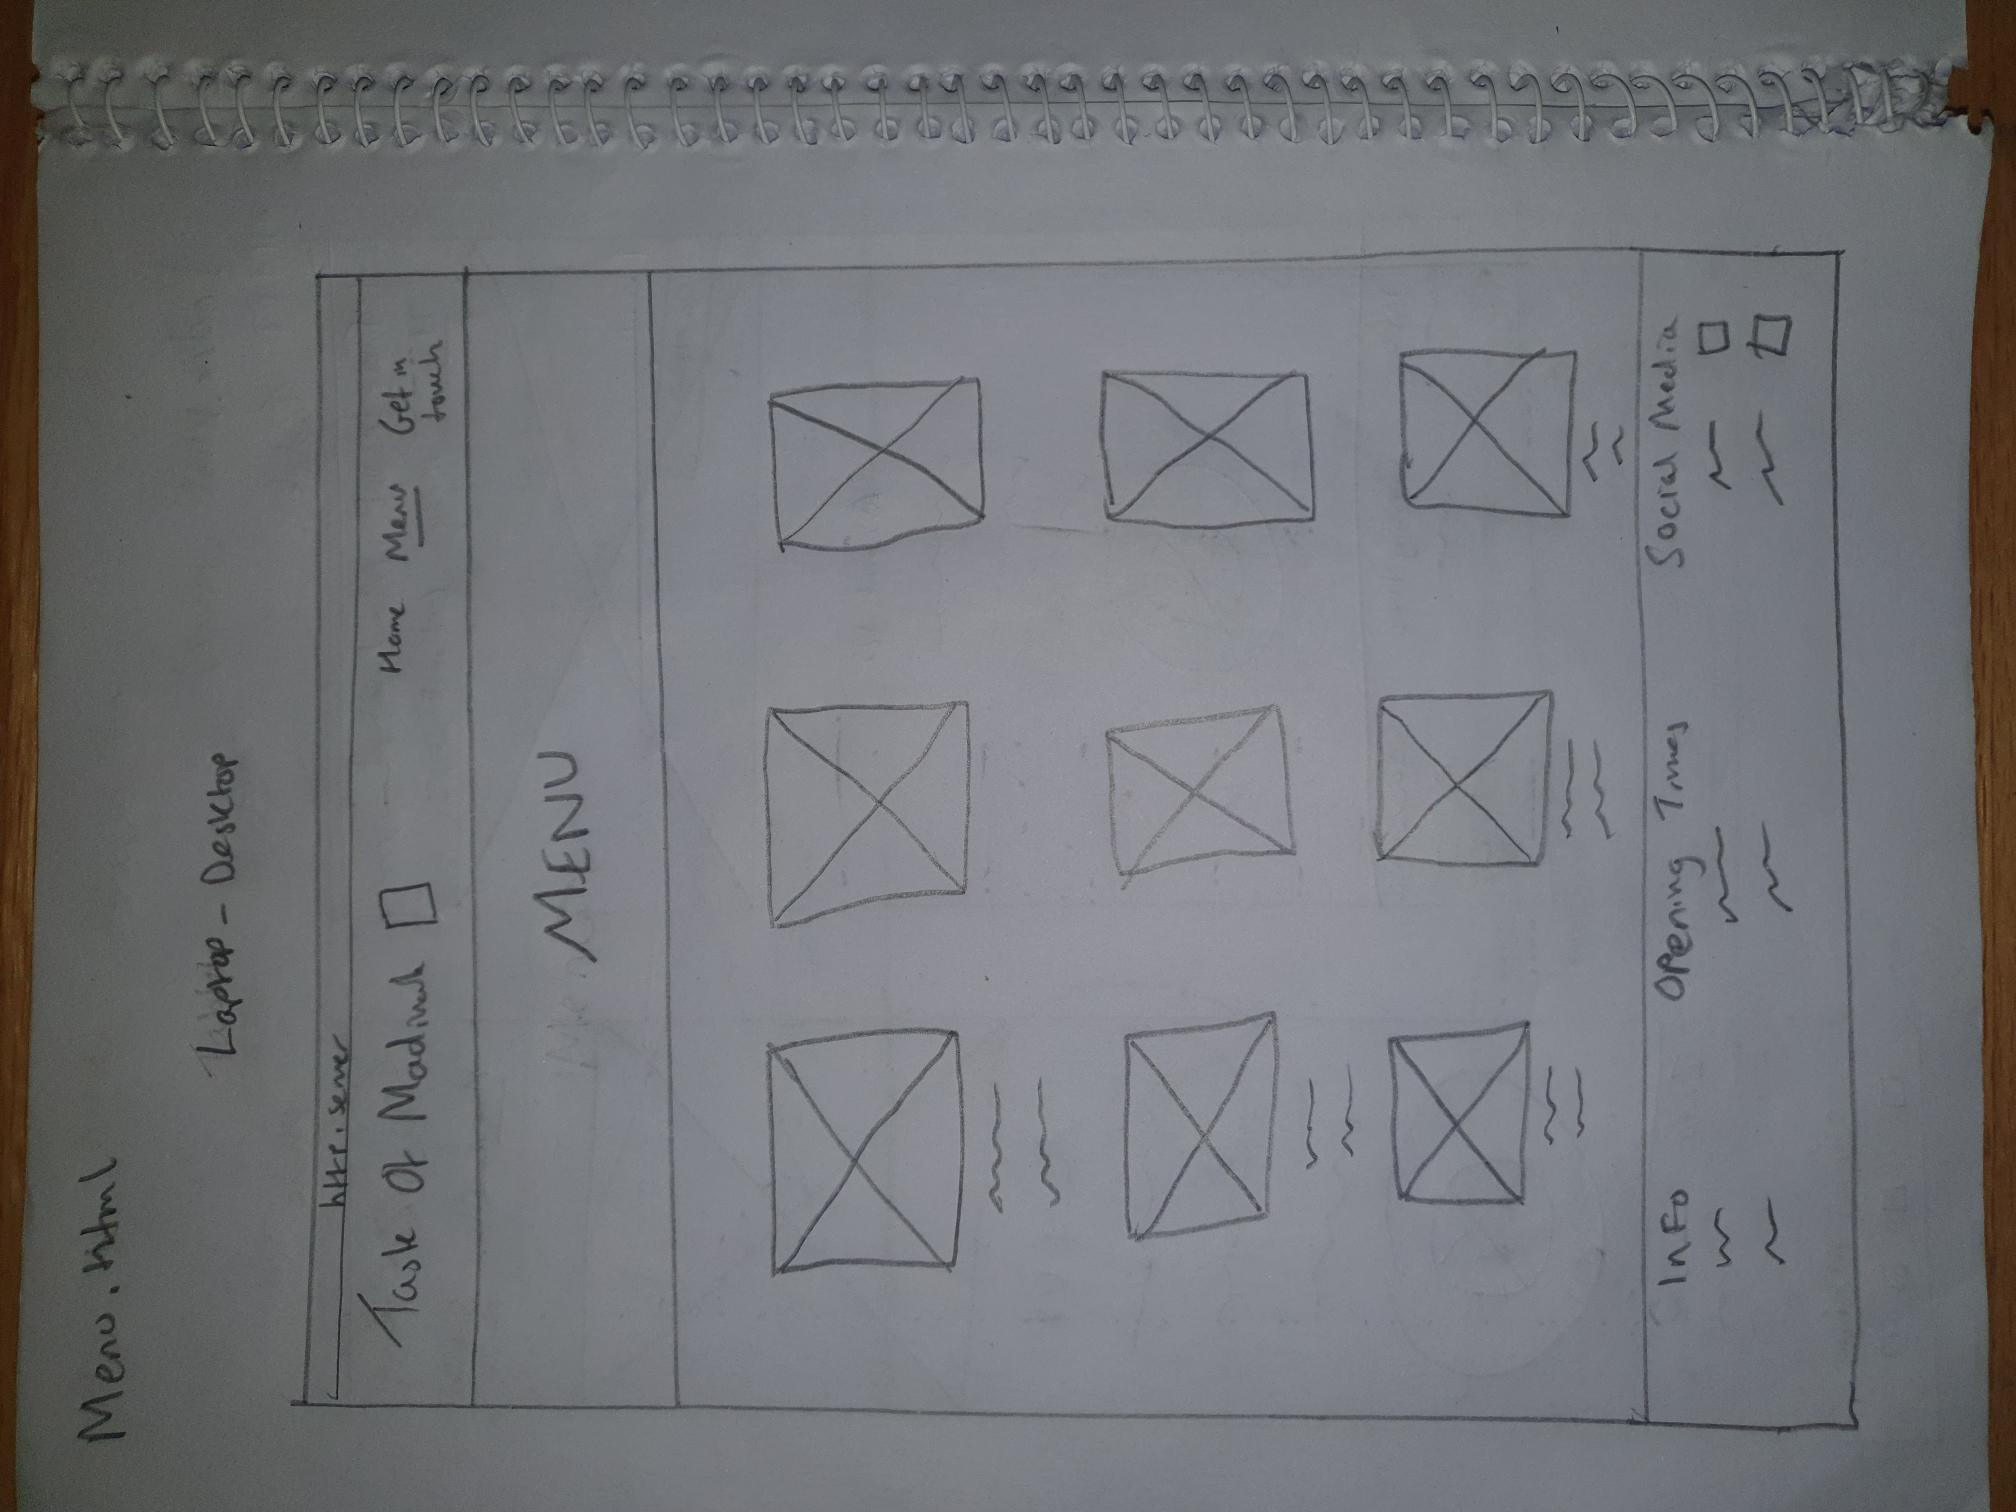 Menu.html
Laptop - Desktop
http.server
Taste Of Madinah
Home Menu Get in
touch
MENU
Info Opening Times Social Media